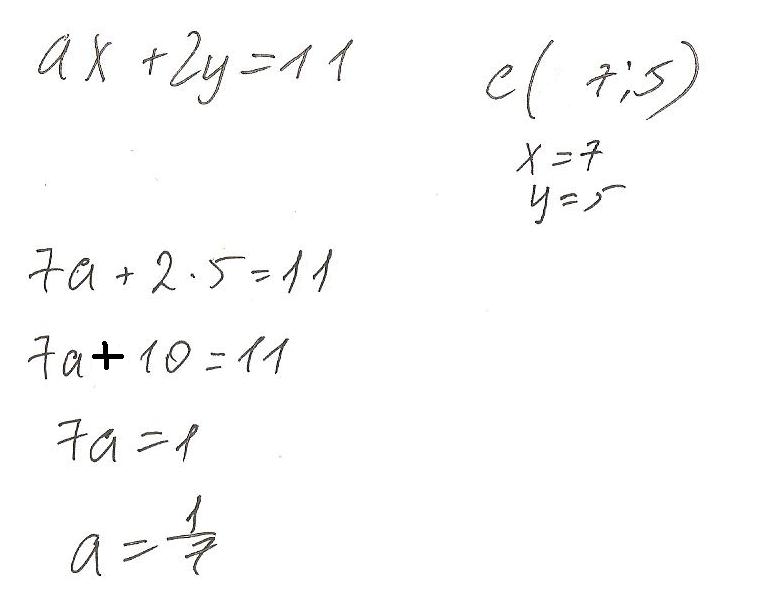 ax + 2y = 11
c( 7;5)
x = 7
y = 5
7a + 2 · 5 = 11
7a + 10 = 11
7a = 1
a = 1/7